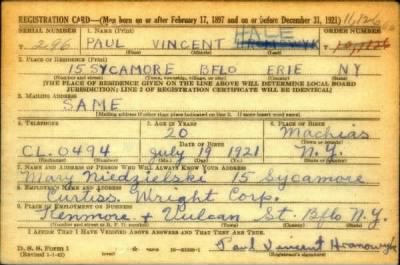 REGISTRATION CARD—(Men born on or after February 17, 1897 and on or before December 31, 1921)
SERIAL NUMBER 1. NAME (Print) ORDER NUMBER
T 296 PAUL VINCENT HALE 11,126
(First) (Middle) (Last)
2. PLACE OF RESIDENCE (Print)
15 SYCAMORE BFLO ERIE NY
(Number and street) (Town, township, village, or city) (County) (State)
[THE PLACE OF RESIDENCE GIVEN ON THE LINE ABOVE WILL DETERMINE LOCAL BOARD
JURISDICTION; LINE 2 OF REGISTRATION CERTIFICATE WILL BE IDENTICAL]
3. MAILING ADDRESS
SAME
[Mailing address if other than place indicated on line 2. If same insert word same]
4. TELEPHONE 5. AGE IN YEARS 6. PLACE OF BIRTH
20 Machias
DATE OF BIRTH
CL. 0494 July 19 1921 N.Y.
7. NAME AND ADDRESS OF PERSON WHO WILL ALWAYS KNOW YOUR ADDRESS
Mary Niedzielski 15 Sycamore
8. EMPLOYER'S NAME AND ADDRESS
Curtiss Wright Corp.
9. PLACE OF EMPLOYMENT OR BUSINESS
Kenmore + Vulcan St. Bflo N.Y.
(Number and street or R. F. D. number) (Town) (County) (State)
I AFFIRM THAT I HAVE VERIFIED ABOVE ANSWERS AND THAT THEY ARE TRUE.
D. S. S. Form 1
(Revised 1-1-42) Paul Vincent Hranowyk
(Registrant's signature)